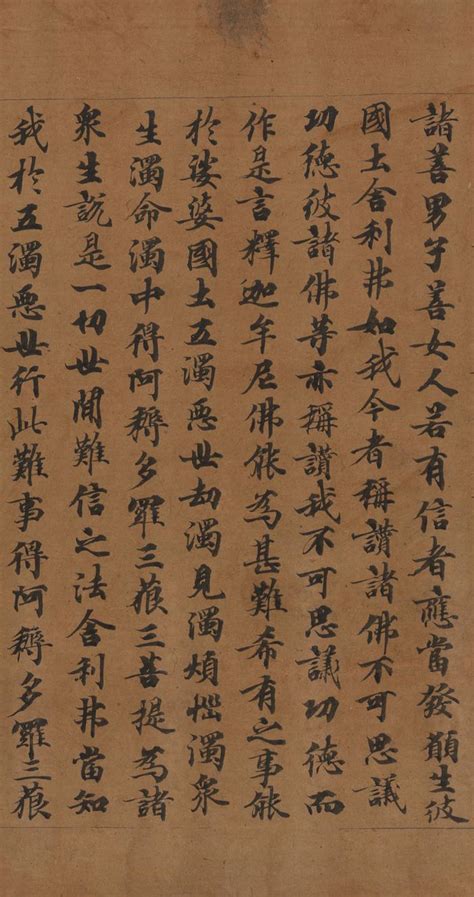 諸善男子善女人若有信者應當發願生彼
國土舍利弗如我今者稱讚諸佛不可思議
功德彼諸佛等亦稱讚我不可思議功德而
作是言釋迦牟尼佛能為甚難希有之事能
於娑婆國土五濁惡世劫濁見濁煩惱濁眾
生濁命濁中得阿耨多羅三藐三菩提為諸
眾生說是一切世間難信之法舍利弗當知
我於五濁惡世行此難事得阿耨多羅三藐